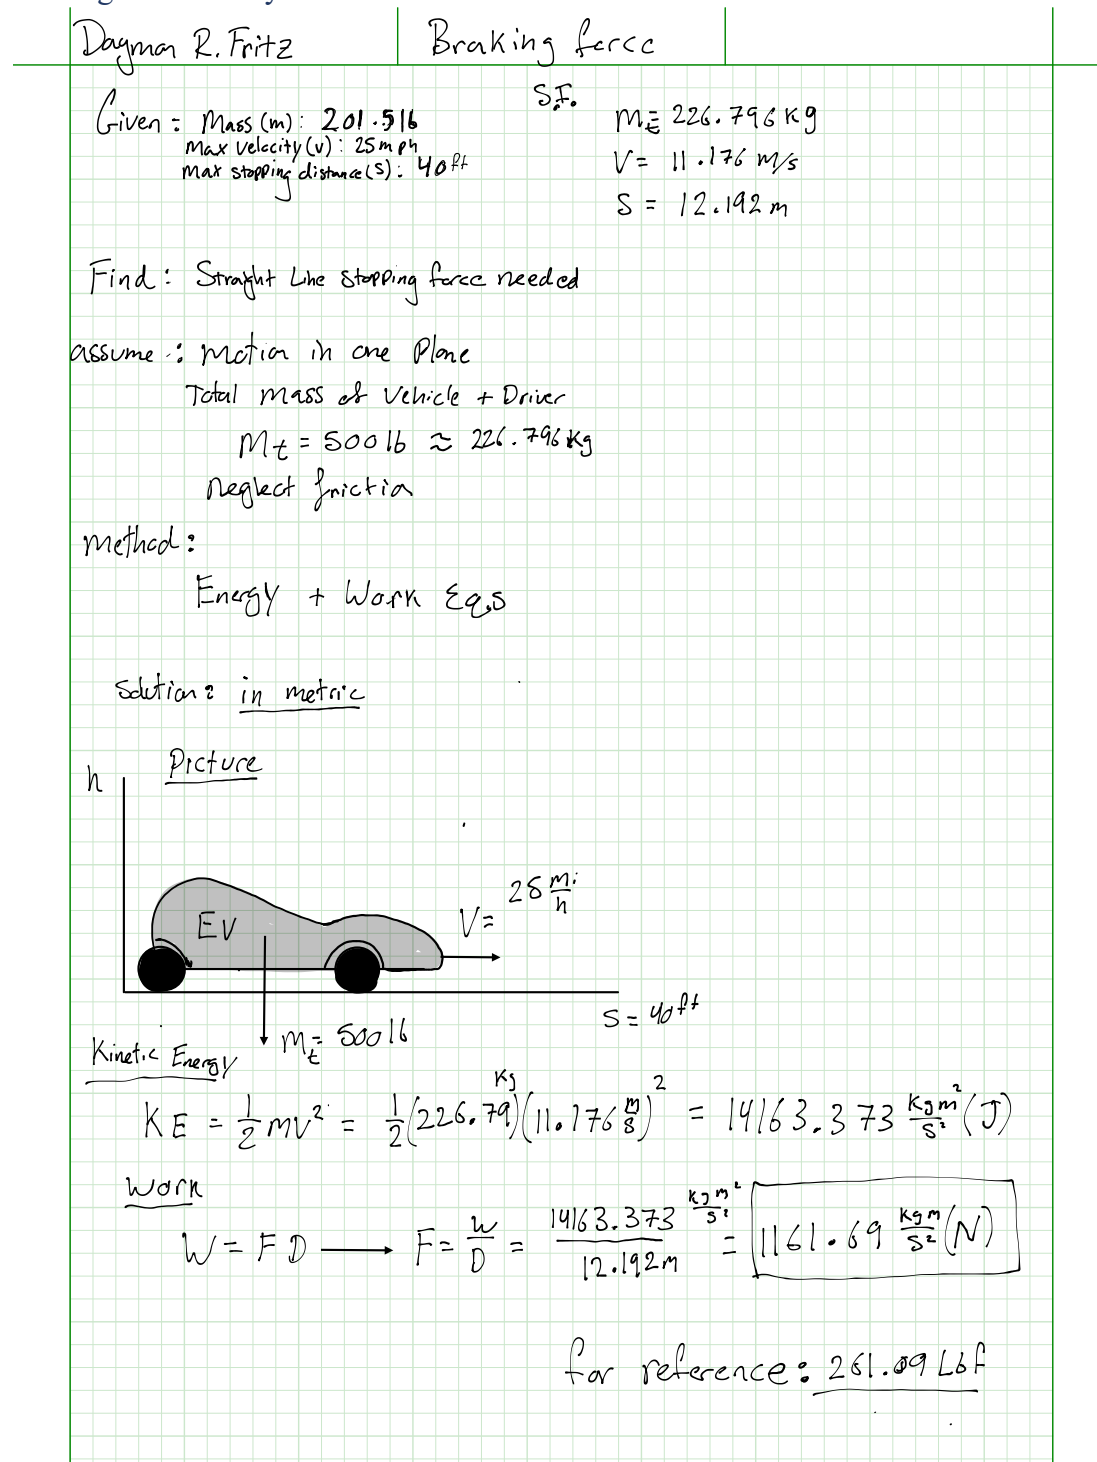 Dagman R. Fritz
Braking force
Given: Mass (m): 201.5lb
Max velocity (v): 25mph
Max stopping distance (s): 40ft
S.I.
Mt= 226.796 kg
V= 11.176 m/s
S= 12.192m
Find: Straight Line stopping force needed
assume: motion in one Plane
Total mass of vehicle + Driver
Mt = 500lb ≈ 226.796 kg
neglect friction
method:
Energy + Work Eq,s
Solution: in metric
Picture
h
EV
V= 25 mi/h
S = 40ft
Mt= 500lb
Kinetic Energy
KE = 1/2 mv² = 1/2 (226.79 kg)(11.176 m/s)² = 14163.373 kgm²/s² (J)
Work
W = FD → F = W/D = 14163.373 kgm²/s² / 12.192m = 1161.69 kgm/s² (N)
for reference: 261.09 Lbf